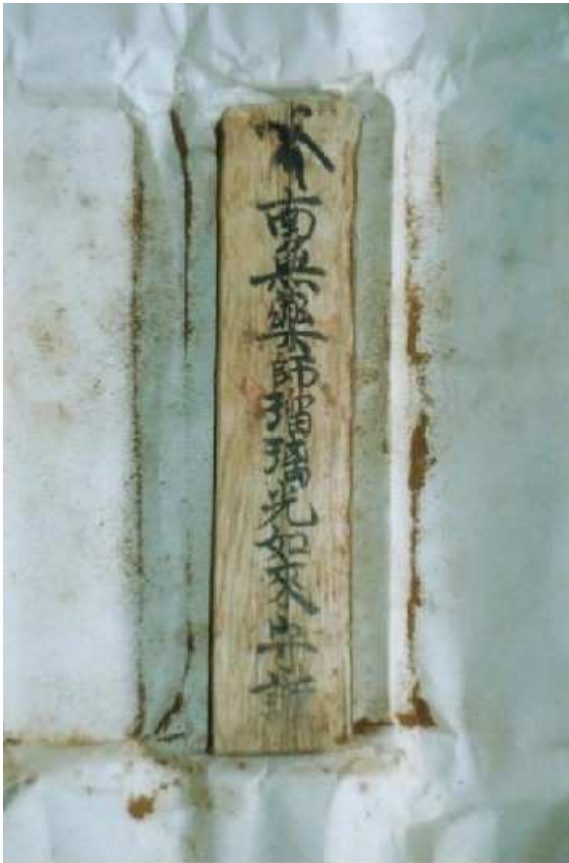 南無薬師瑠璃光如來